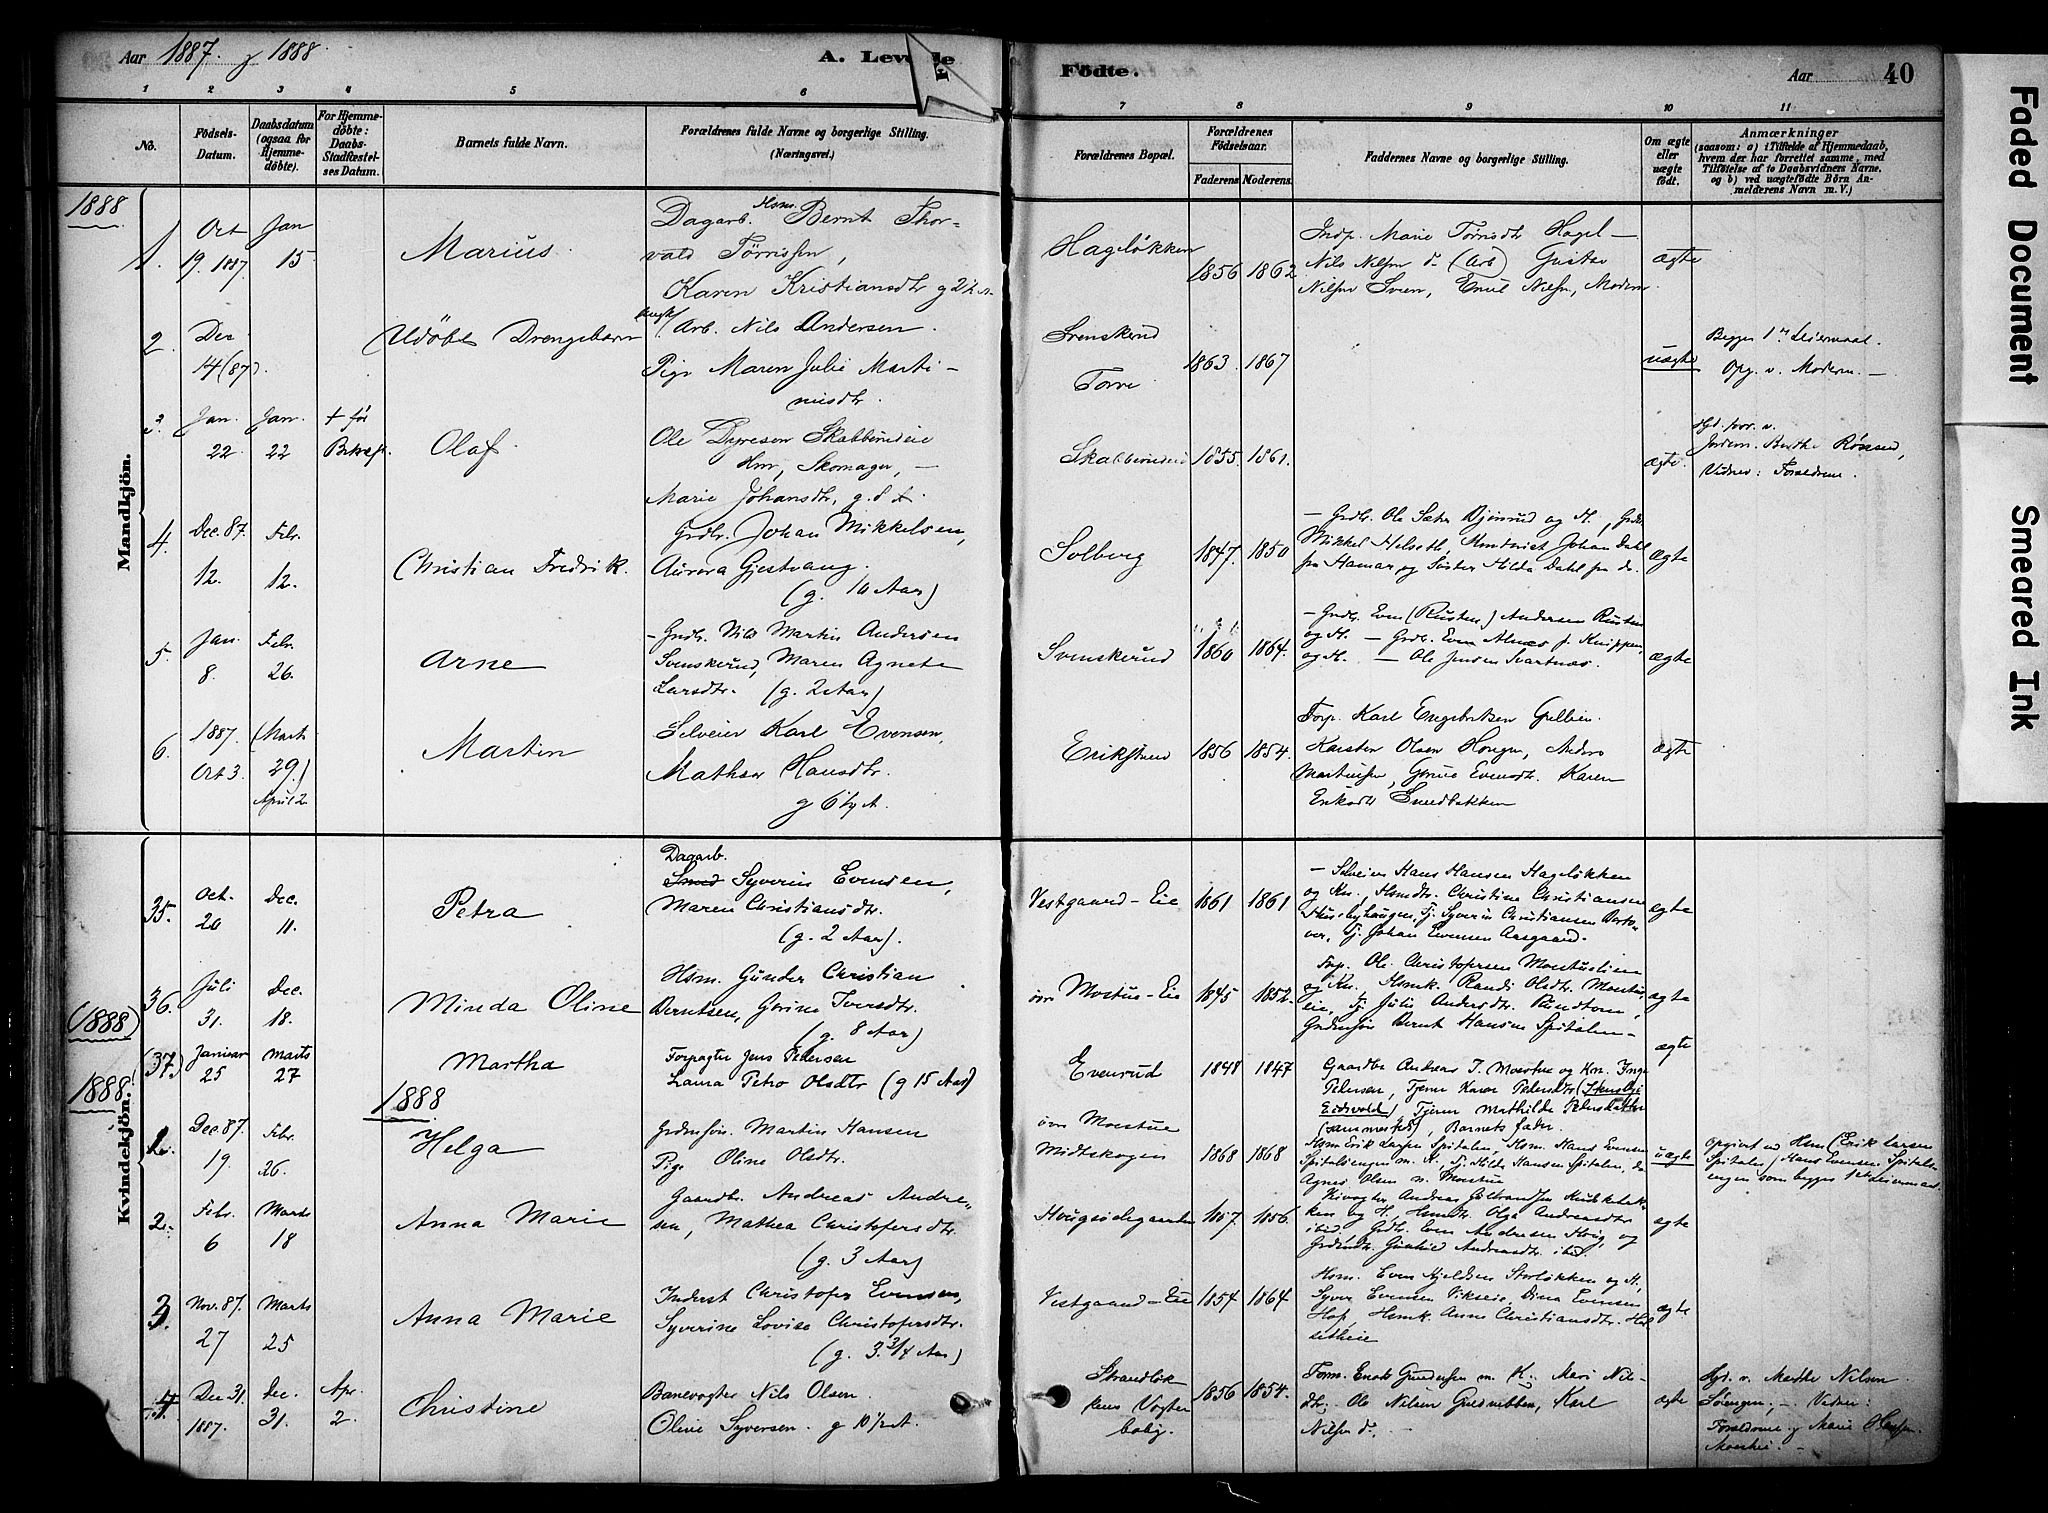 Aar 1887. g 1888.
A. Levende
Fødte.
Aar
40
1 2 3 4 5 6 7 8 9 10 11
No.
Fødsels-
Datum.
Daabsdatum
(ogsaa for
Hjemme-
døbte).
For Hjemme-
døbte:
Daabs-
Stadfæstel-
ses Datum.
Barnets fulde Navn.
Forældrenes fulde Navne og borgerlige Stilling.
(Næringsvei.)
Forældrenes Bopæl.
Forældrenes
Fødselsaar.
Faderens. Moderens.
Faddernes Navne og borgerlige Stilling.
Om ægte
eller
uægte
født.
Anmærkninger
(saasom: a) i Tilfælde af Hjemmedaab,
hvem der har forrettet samme, med
Tilføielse af to Daabsvidners Navne,
og b) ved uægtefødte Børn An-
melderens Navn m. V.)
Mandkjön.
1888
1. Oct 19. 1887 Jan 15 Marius.
Dagarb. Hsm. Bernt Thor-
vald Tørrissen,
Karen Kristiansdtr
Hageløkken 1856 1862
Indp. Marie Tørrisdtr Hagel-
Nils Nilsen d- (Arb) Gustav
Nilsen Svien, Emil Nilsen, Modern
ægte
2. Dec 14 (87). Udøbt Drengebarn
Arb. Nils Andersen.
Pige Maren Julie Marti-
nusdtr.
Svenskerud
Torve
1863. 1867
uægte
Begges 1ste Leiermaal.
Opg. v. Modern. -
3. Jan. 22 Jan. 22 + før Bekræft. Olaf.
Ole Dyresen Skabberudeie
Hm, Skomager, -
Marie Johansdtr, g.
Skabberudeie 1855. 1861.
ægte.
Jordem. Berthe Rønsed,
Vidner: Forældrene.
4. Dec. 87. 12. Febr. 12. Christian Fredrik.
Grdbr. Johan Mikkelsen,
Aurora Gjestvang.
(g. 10 Aar)
Solberg 1847. 1850
- Grdbr. Ole Sæter Bjønrud og H.,
Mikkel Helseth, Johan Dahl
fra Hamar og Søster Hilda Dahl fra do.
ægte
5. Jan. 8. Febr. 26. Arne
- Grdbr. Nils Martin Andersen
Svenskerud, Maren Agnete
Larsdtr. (g. 2 Aar)
Svenskerud 1860 1864.
- Grdbr. Even (Rusten) Andersen Rusten
og H. - Grdbr. Even Alnæs f. Knippen,
og H. - Ole Jensen Svartnæs.
ægte
6. 1887. Oct 3. (Marts 29) April 2. Martin
Selveier Karl Evensen,
Mathea Hansdtr.
g 6 ½ A.
Erikstrud 1856 1854.
Forp. Karl Engebretsen Gulbien.
Karsten Olsen Hongen, Anders
Martinsen, Gorine Evensdtr. Karen
Eriksdtr Smedbakken
ægte
Kvindekjön.
35. Oct. 20 Dec. 11. Petra
Dagarb.
Smed Syverin Evensen,
Maren Christiansdtr.
(g. 2 Aar).
Vestgaard-Eie 1861 1861
- Selveier Hans Hansen Hageløkken
og Kn., Hsmdtr. Christine Christiansen
Husebyhaugen, Tj. Syverin Christiansen
Tj. Johan Evensen Aasgaard.
ægte
(1888)
36. Juli 31. Dec. 18. Minda Oline
Hsm. Gunder Christian
Berntsen, Gorine Iversdtr.
(g. 8 Aar)
øvr Mostue-Eie 1845 1852.
Forp. Ole Christofersen Mostuelien
og Kn., Hsmk. Randi Olsdtr. Mostue-
eie, Tj. Julie Andersdtr. Rundtom,
Bernt Hansen Spitalen-
ægte
(37.) Januar 25 Marts 27 Martha
Forpagter Jens Pedersen
Laura Petro Olsdtr (g 15 Aar)
Evenrud 1848 1847
Gaardbr Andreas J. Moestue og Kn. Inge
Petersen, Tjener Karen Pedersdtr
Eidsvold), Tjener Mathilde Pedersdatter
(sammesteds), Barnets fader.
ægte
1888.
1888
1. Dec. 87. 19. Febr. 26. Helga
Martin Hansen
Pige Oline Olsdtr.
øvr Moestue
Midtskogen 1868 1868
Hsm Erik Larsen Spitalen, Hsm. Hans Evensen
Spitalsengen m. K. Tj. Hilda Hansen Spitalen, do
Agnes Olsen n. Moestue
uægte
opgivet ved Hsm (Erik Larsen
Spitalen) Hans Evensen Spitals-
engen som begges 1ste Leiermaal.
2. Febr. 6 Marts 18 Anna Marie
Gaardbr. Andreas Andre-
sen, Mathea Christofersdtr.
(g. 3 Aar)
Hougsødegaarden 1857. 1856.
Andreas Gulbrandsen
ken og H., Hsmdtr. Olga Andreasdtr
ibid, Grdbr. Even Andresen Houg, og
Grdmdtr. Andreasdtr. ibid.
ægte
3. Nov. 87. 27 Marts 25 Anna Marie
Inderst Christofer Evensen,
Syverine Lovise Christofersdtr.
(g. 3. 3/4 Aar)
Vestgaard-Eie 1854 1864
Hsm. Even Kjeldsen Storløkken og H,
Syver Evensen Vikseie, Dina Evensen
Hof, Hsmk. Anne Christiansdtr. Hel-
setheie
ægte
4. Dec 31. 1887. Dec. 31. Apr. 2. Christine
Banevogter Nils Olsen.
Oline Syversen. g 10 ½ A.
Strandløk
kens Vogter
bolig. 1856 1854.
Gundersen m. K. Mari Nils-
dtr. Ole Nilsen Guldsetbben, Karl
Nilsen d.
ægte
Hjd. v. Marthe Nilsen
Vidner:
Forældrene g Marie Hansen
Moestue. -
Faded Document
Smeared Ink